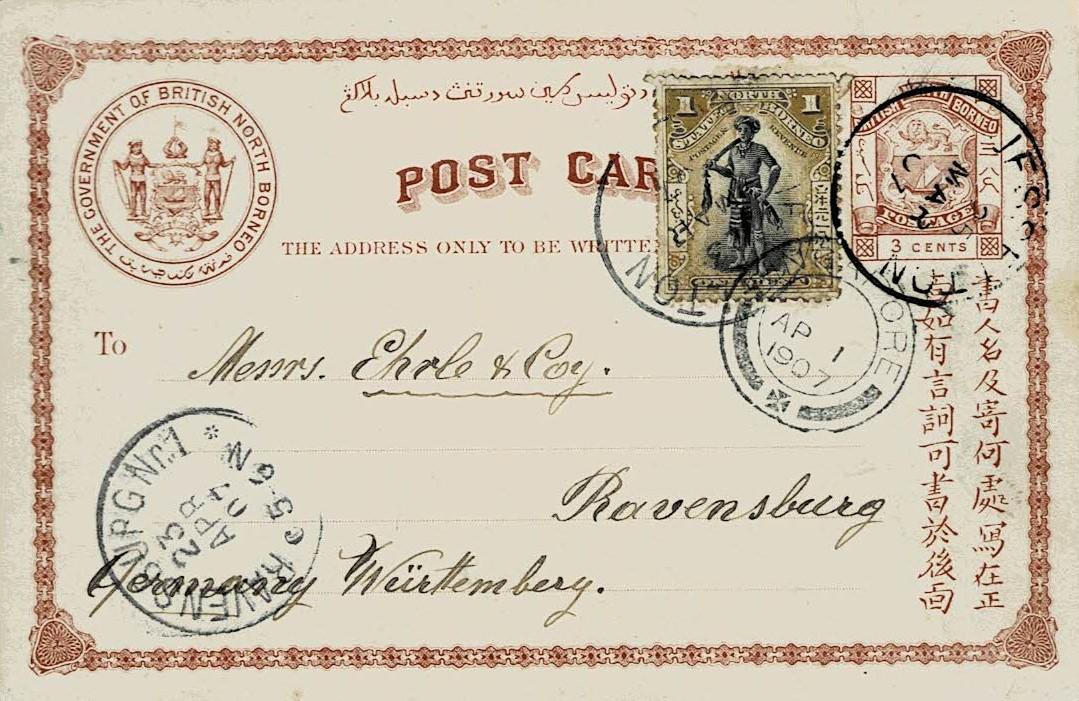 THE GOVERNMENT OF BRITISH NORTH BORNEO
POST CAR
THE ADDRESS ONLY TO BE WRITTEN
1 NORTH 1
STATE OF BORNEO
POSTAGE REVENUE
BRITISH NORTH BORNEO
POSTAGE
3 CENTS
JESSELTON
MA 2
07
TON
AP 1
1907
To
Messrs. Ehrle & Coy.
Ravensburg
Germany Württemberg.
RAVENSBURG Nr. 1
23 APR 07
5-6 N
書人名及寄何處寫在正
如有言詞可書於後向